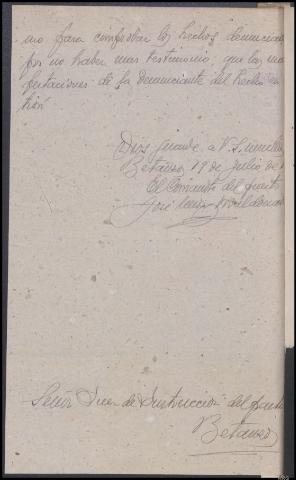 mo para comprobar los hechos denunciad
por no haber mas testimonio, que las ma
festaciones de la denunciante del hecho en
tion
Dios guarde a V.S. muchos
Betanzos 19 de Julio de 1
El Comandte del puesto
José
Señor Juez de Instruccion del parti
Betanzos